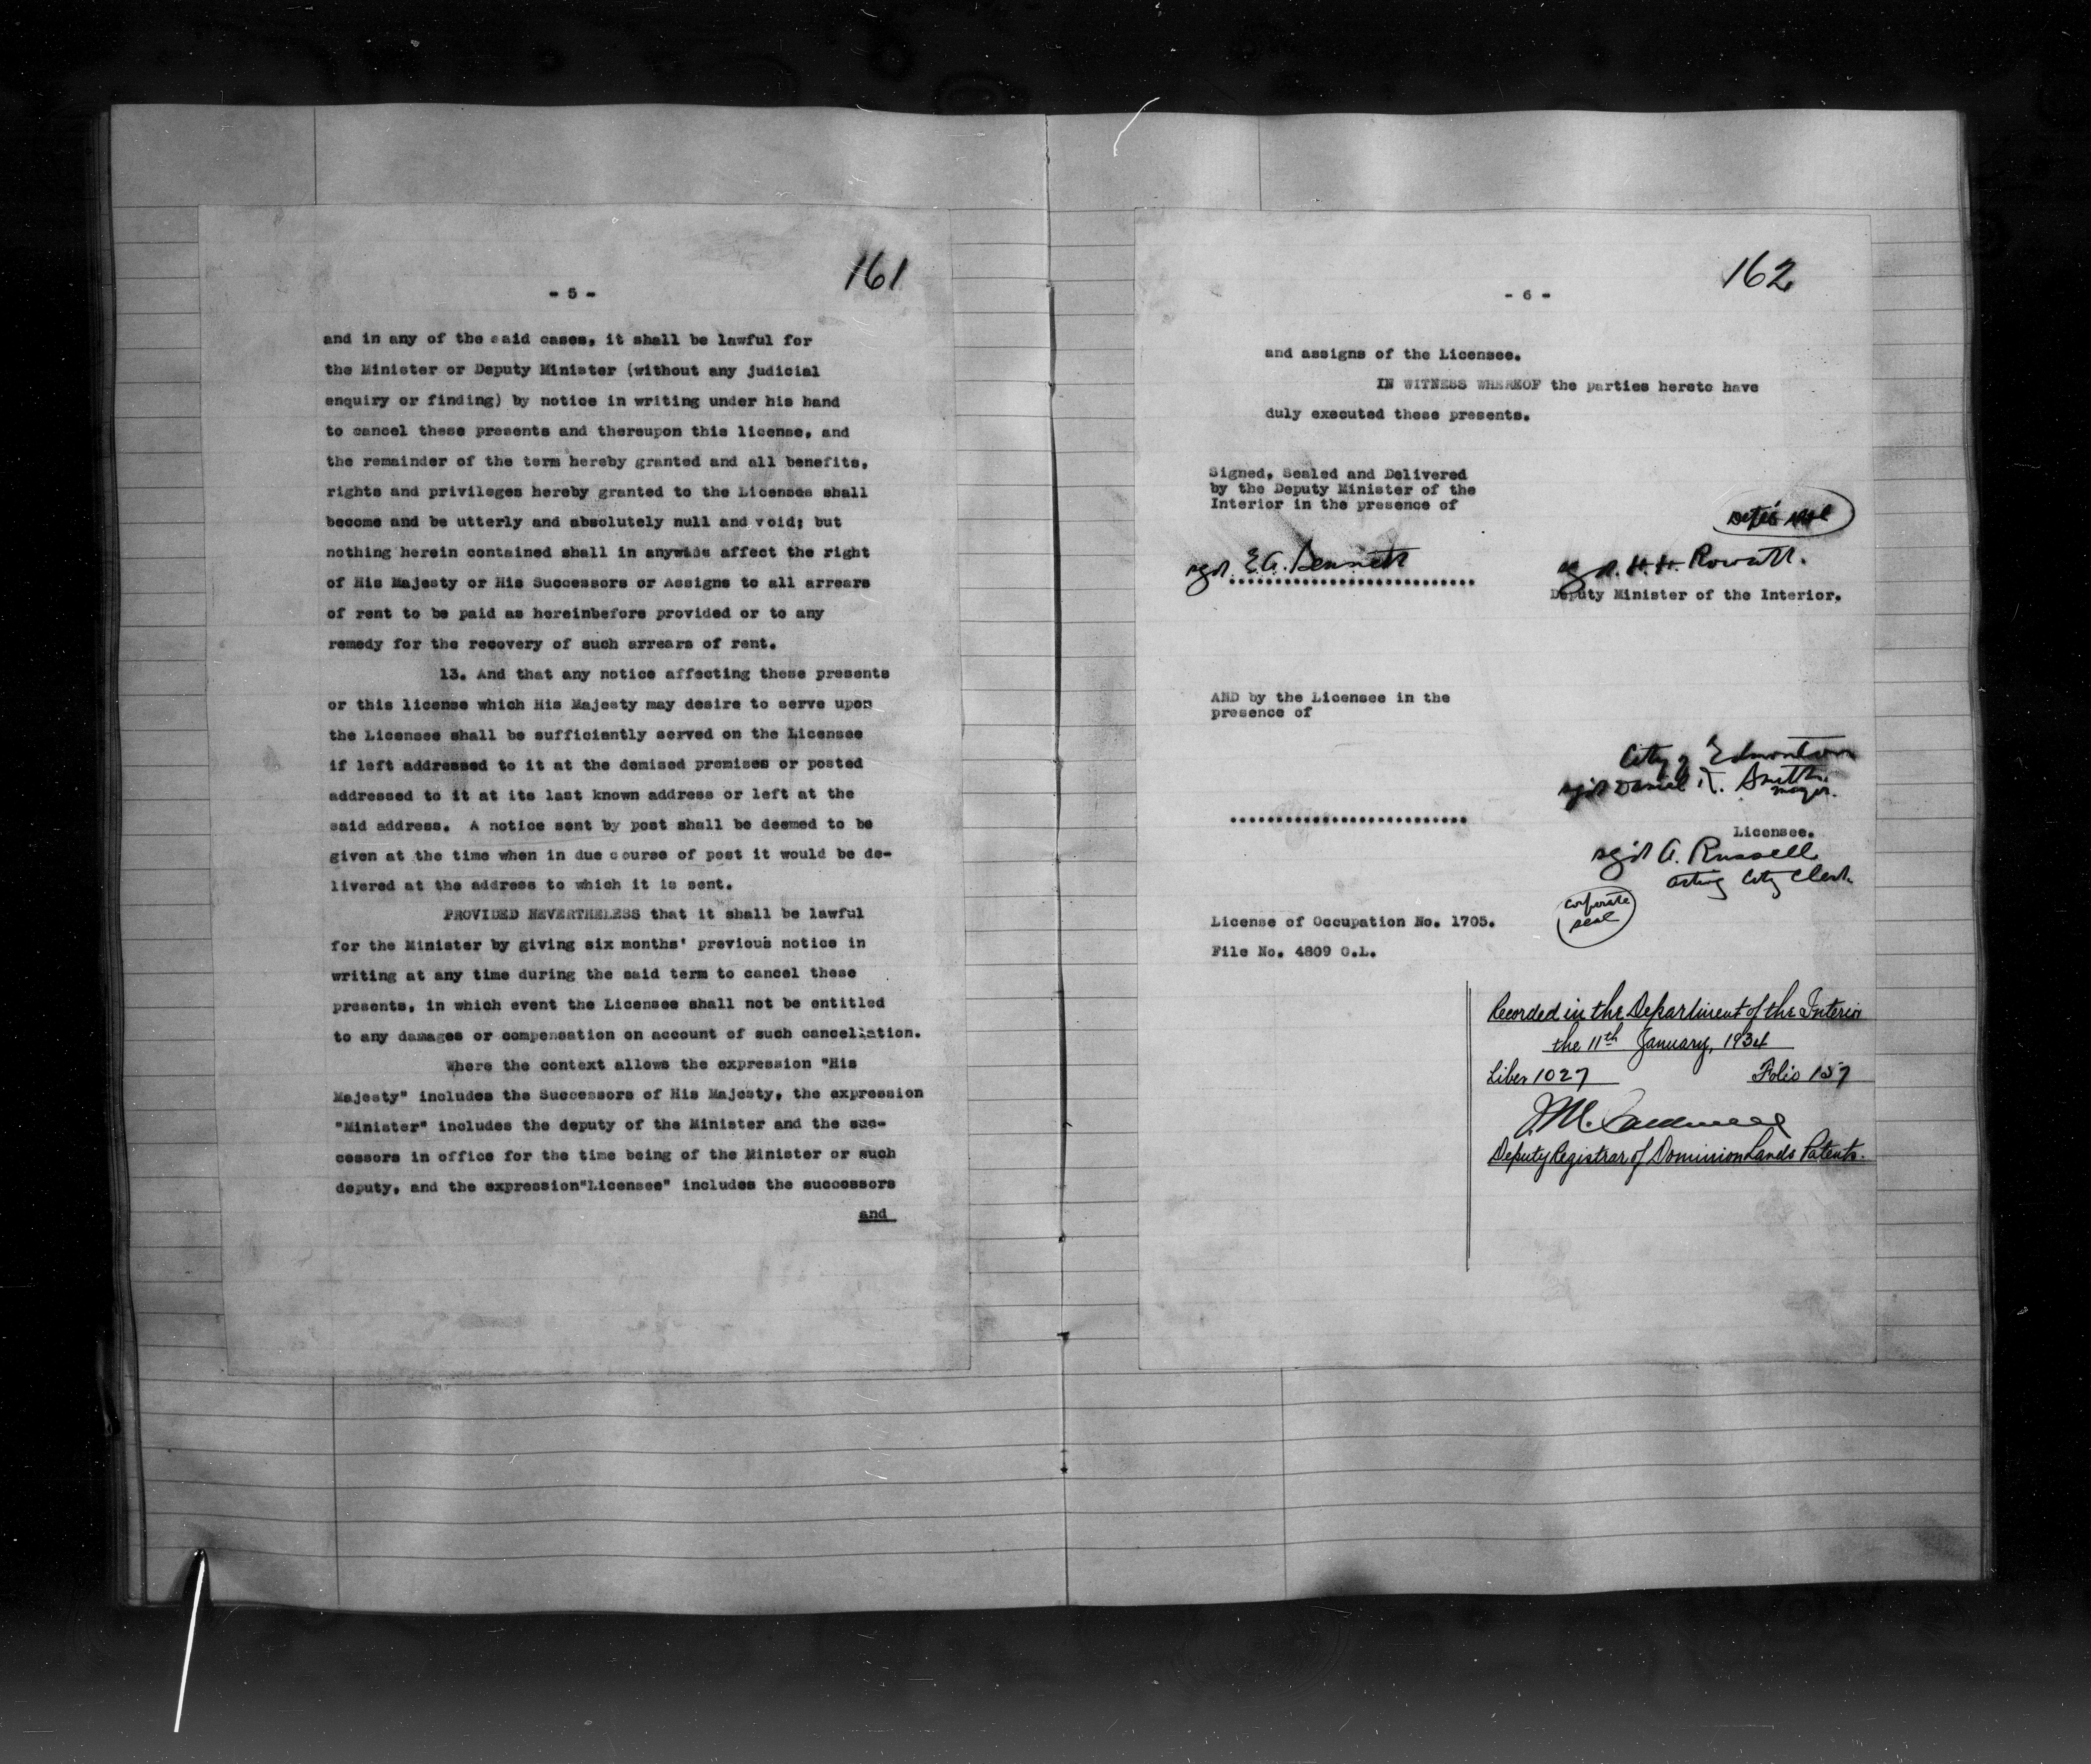 161
- 5 -
and in any of the said cases, it shall be lawful for
the Minister or Deputy Minister (without any judicial
enquiry or finding) by notice in writing under his hand
to cancel these presents and thereupon this license, and
the remainder of the term hereby granted and all benefits,
rights and privileges hereby granted to the Licensee shall
become and be utterly and absolutely null and void; but
nothing herein contained shall in anywise affect the right
of His Majesty or His Successors or Assigns to all arrears
of rent to be paid as hereinbefore provided or to any
remedy for the recovery of such arrears of rent.
13. And that any notice affecting these presents
or this license which His Majesty may desire to serve upon
the Licensee shall be sufficiently served on the Licensee
if left addressed to it at the demised premises or posted
addressed to it at its last known address or left at the
said address. A notice sent by post shall be deemed to be
given at the time when in due course of post it would be de-
livered at the address to which it is sent.
PROVIDED NEVERTHELESS that it shall be lawful
for the Minister by giving six months' previous notice in
writing at any time during the said term to cancel these
presents, in which event the Licensee shall not be entitled
to any damages or compensation on account of such cancellation.
Where the context allows the expression "His
Majesty" includes the Successors of His Majesty, the expression
"Minister" includes the deputy of the Minister and the suc-
cessors in office for the time being of the Minister or such
deputy, and the expression"Licensee" includes the successors
and
162
- 6 -
and assigns of the Licensee.
IN WITNESS WHEREOF the parties hereto have
duly executed these presents.
Signed, Sealed and Delivered
by the Deputy Minister of the
Interior in the presence of
sgd. E.A. Bennett
sgd. H.H. Rowatt.
Deputy Minister of the Interior.
AND by the Licensee in the
presence of
City of Edmonton
sgd Daniel K. Smith
mayor.
Licensee.
sgd A. Russell
acting City Clerk.
corporate
seal
License of Occupation No. 1705.
File No. 4809 O.L.
Recorded in the Department of the Interior
the 11th January, 1934
Liber 1027 Folio 157
Deputy Registrar of Dominion Lands Patents.